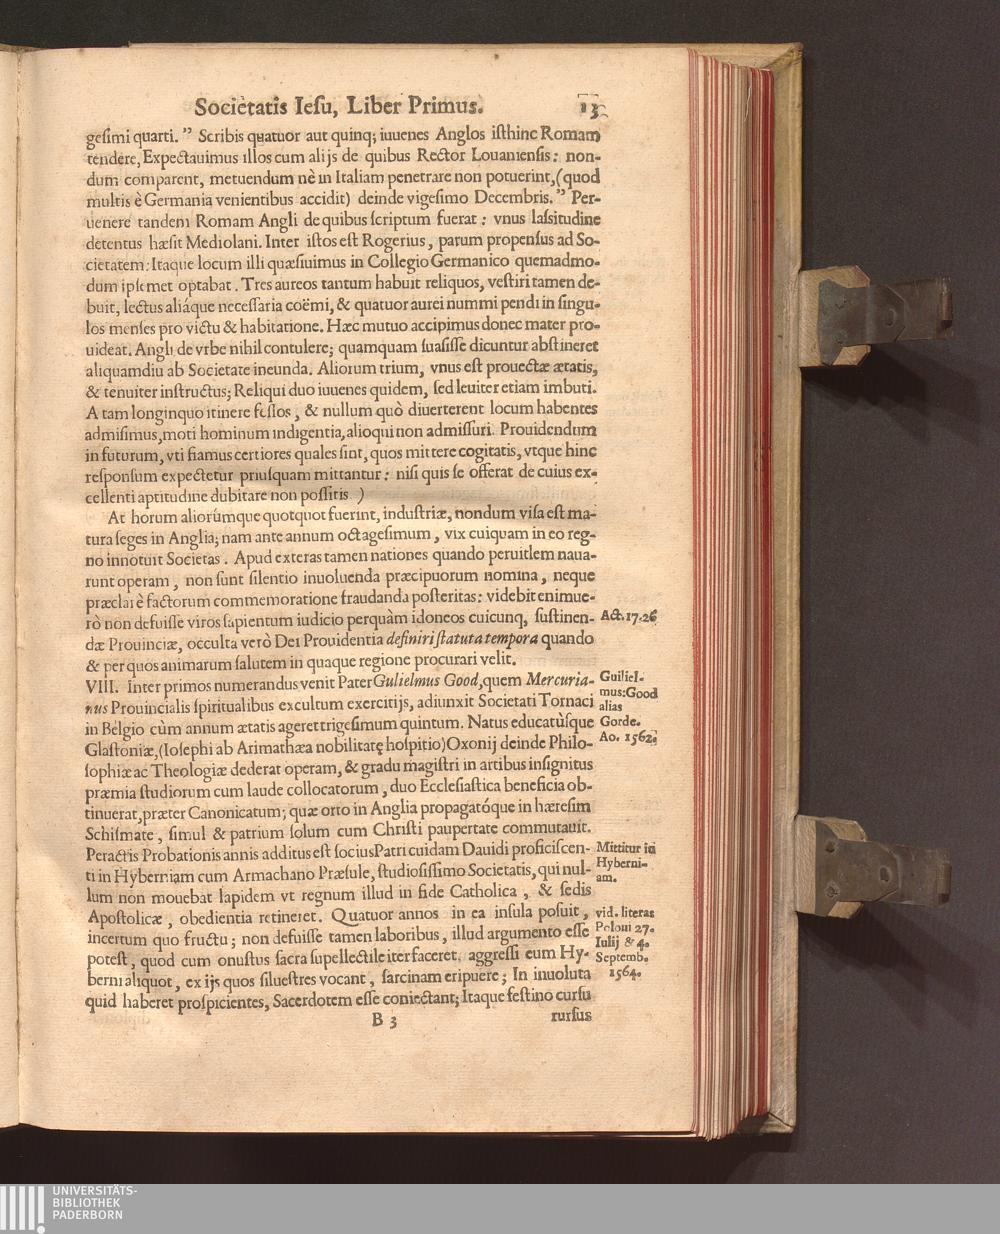 Societatis Iesu, Liber Primus. 13
gesimi quarti. ” Scribis quatuor aut quinq; iuuenes Anglos isthinc Romam
tendere, Expectauimus illos cum alijs de quibus Rector Louaniensis: non-
dum comparent, metuendum nè in Italiam penetrare non potuerint, (quod
multis è Germania venientibus accidit) deinde vigesimo Decembris. ” Per-
uenere tandem Romam Angli de quibus scriptum fuerat: vnus lassitudine
detentus hæsit Mediolani. Inter istos est Rogerius, parum propensus ad So-
cietatem: Itaque locum illi quæsiuimus in Collegio Germanico quemadmo-
dum ipsemet optabat. Tres aureos tantum habuit reliquos, vestiri tamen de-
buit, lectus aliáque necessaria coëmi, & quatuor aurei nummi pendi in singu-
los menses pro victu & habitatione. Hæc mutuo accipimus donec mater pro-
uideat. Angli de vrbe nihil contulere; quamquam suasisse dicuntur abstineret
aliquamdiu ab Societate ineunda. Aliorum trium, vnus est prouectæ ætatis,
& tenuiter instructus; Reliqui duo iuuenes quidem, sed leuiter etiam imbuti.
A tam longinquo itinere fessos, & nullum quò diuerterent locum habentes
admisimus, moti hominum indigentia, alioqui non admissuri. Prouidendum
in futurum, vti fiamus certiores quales sint, quos mittere cogitatis, vtque hinc
responsum expectetur priusquam mittantur: nisi quis se offerat de cuius ex-
cellenti aptitudine dubitare non possitis )
At horum aliorúmque quotquot fuerint, industriæ, nondum visa est ma-
tura seges in Anglia; nam ante annum octagesimum, vix cuiquam in eo reg-
no innotuit Societas. Apud exteras tamen nationes quando peruitlem naua-
runt operam, non sunt silentio inuoluenda præcipuorum nomina, neque
præclarè factorum commemoratione fraudanda posteritas: videbit enimue-
rò non defuisse viros sapientum iudicio perquàm idoneos cuicunq, sustinen- Act. 17. 26
dæ Prouinciæ, occulta verò Dei Prouidentia definiri statuta tempora quando
& per quos animarum salutem in quaque regione procurari velit.
VIII. Inter primos numerandus venit Pater Gulielmus Good, quem Mercuria- Guiliel-
nus Prouincialis spiritualibus excultum exercitijs, adiunxit Societati Tornaci mus: Good alias
in Belgio cùm annum ætatis ageret trigesimum quintum. Natus educatúsque Gorde.
Glastoniæ, (Iosephi ab Arimathæa nobilitatę hospitio) Oxonij deinde Philo- Ao. 1562.
sophiæ ac Theologiæ dederat operam, & gradu magistri in artibus insignitus
præmia studiorum cum laude collocatorum, duo Ecclesiastica beneficia ob-
tinuerat, præter Canonicatum; quæ orto in Anglia propagatóque in hæresim
Schismate, simul & patrium solum cum Christi paupertate commutauit.
Peractis Probationis annis additus est socius Patri cuidam Dauidi proficiscen- Mittitur in
ti in Hyberniam cum Armachano Præsule, studiosissimo Societatis, qui nul- Hyberni-
lum non mouebat lapidem vt regnum illud in fide Catholica, & sedis am.
Apostolicæ, obedientia retineret. Quatuor annos in ea insula posuit, vid. literas
incertum quo fructu; non defuisse tamen laboribus, illud argumento esse Poloni 27.
potest, quod cum onustus sacra supellectile iter faceret, aggressi eum Hy- Iulij & 4.
berni aliquot, ex ijs quos siluestres vocant, sarcinam eripuere; In inuoluta Septemb.
quid haberet prospicientes, Sacerdotem esse coniectant; Itaque festino cursu 1564.
B 3 rursus
UNIVERSITÄTS-
BIBLIOTHEK
PADERBORN